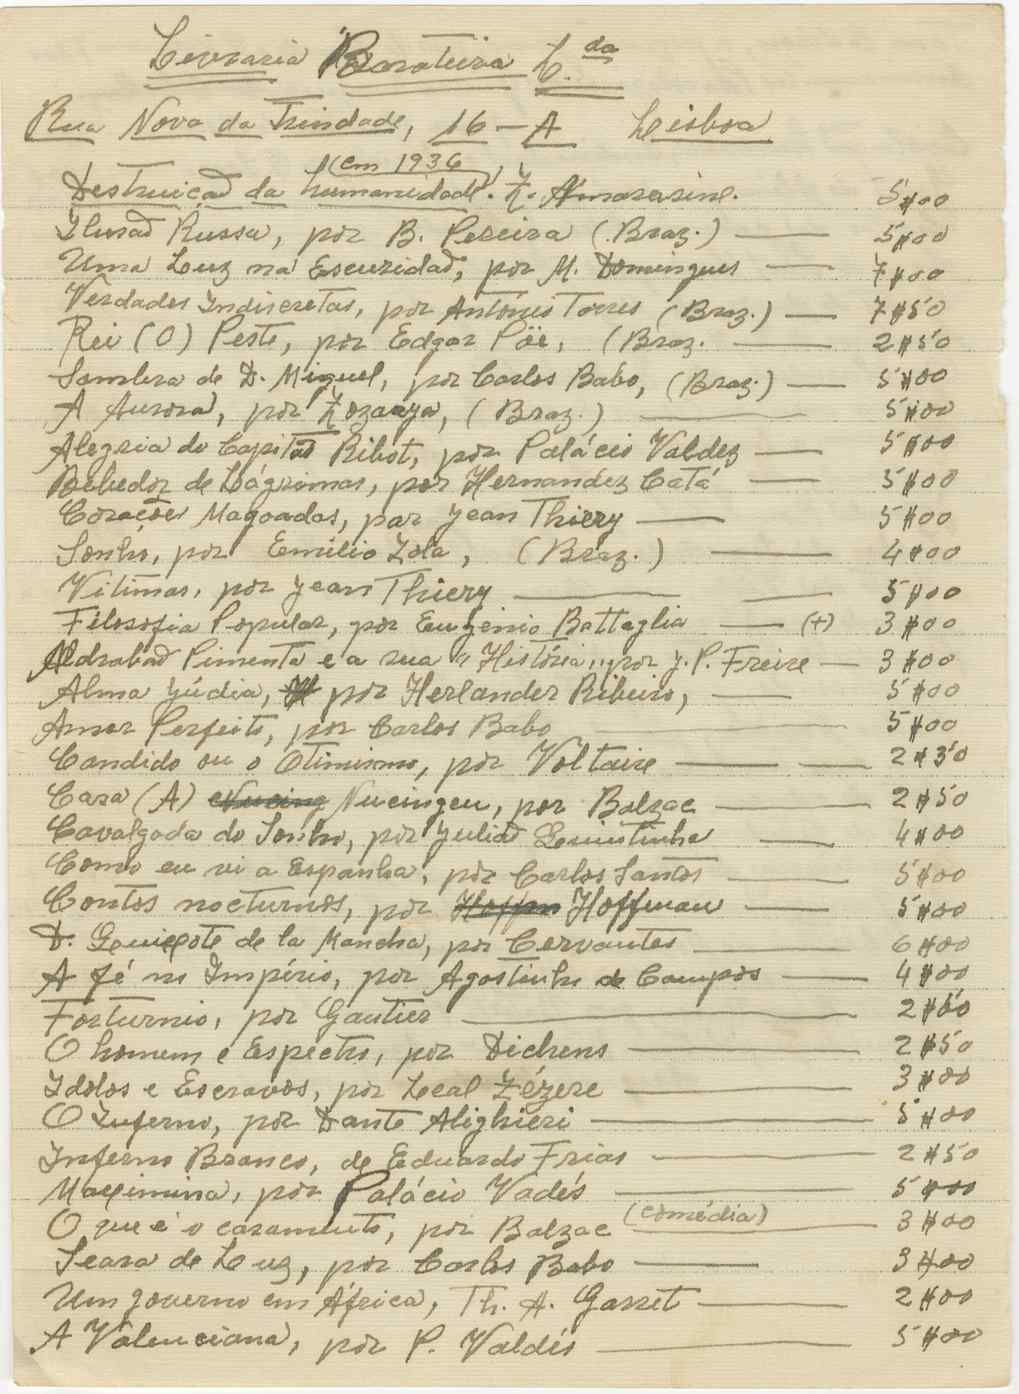 Livraria Barateira L.da
Rua Nova da Trindade, 16-A Lisboa
(em 1936)
Destruição da humanidade. Z.
5$00
Ilusão Russa, por B. Pereira (Braz.) — 5$00
Uma Luz na Escuridão, por M. Domingues — 7$00
Verdades Indiscretas, por António Torres (Braz.) — 7$50
Rei (O) Peste, por Edgar Pöe, (Braz. — 2$50
Sombra de D. Miguel, por Carlos Babo, (Braz.) — 5$00
A Aurora, por Zozaya, (Braz.) — 5$00
Alegria do Capitão Ribot, por Palácio Valdez — 5$00
Bebedor de Lágrimas, por Hernandez Catá — 5$00
Corações Magoados, por Jean Thiery — 5$00
Sonho, por Emilio Zola, (Braz.) — 4$00
Vitimas, por Jean Thiery — 5$00
Filosofia Popular, por Eugenio Battaglia — (+) 3$00
Aldrabão Pimenta e a sua "História", por J. P. Freire — 3$00
Alma Júdia, por Herlander Ribeiro, — 5$00
Amor Perfeito, por Carlos Babo — 5$00
Candido ou o Otimismo, por Voltaire — 2$50
Casa (A) Nucingen, por Balzac — 2$50
Cavalgada do Sonho, por Julião Quintinha — 4$00
Como eu vi a Espanha, por Carlos Santos — 5$00
Contos nocturnos, por Hoffman — 5$00
D. Quixote de la Mancha, por Cervantes — 6$00
A fé no Império, por Agostinho de Campos — 4$00
Fortunio, por Gautier — 2$50
O homem e Espectro, por Dickens — 2$50
Idolos e Escravos, por Leal Zézere — 3$00
O Inferno, por Dante Alighieri — 5$00
Inferno Branco, de Eduardo Frias — 2$50
Maximina, por Palácio Vadés — 5$00
O que é o casamento, por Balzac (comédia) — 3$00
Seara de Luz, por Carlos Babo — 3$00
Um governo em África, Th. A. Garret — 2$00
A Valenciana, por P. Valdés — 5$00